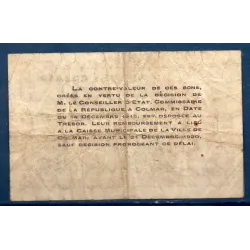 La contre-valeur de ces bons,
créés en vertu de la décision de
M. le Conseiller d'État, Commissaire
de la République à Colmar, en date
du 14 décembre 1918, est déposée au
Trésor. Leur remboursement a lieu
à la Caisse Municipale de la Ville de
Colmar, avant le 31 décembre 1920,
sauf décision prorogeant ce délai.